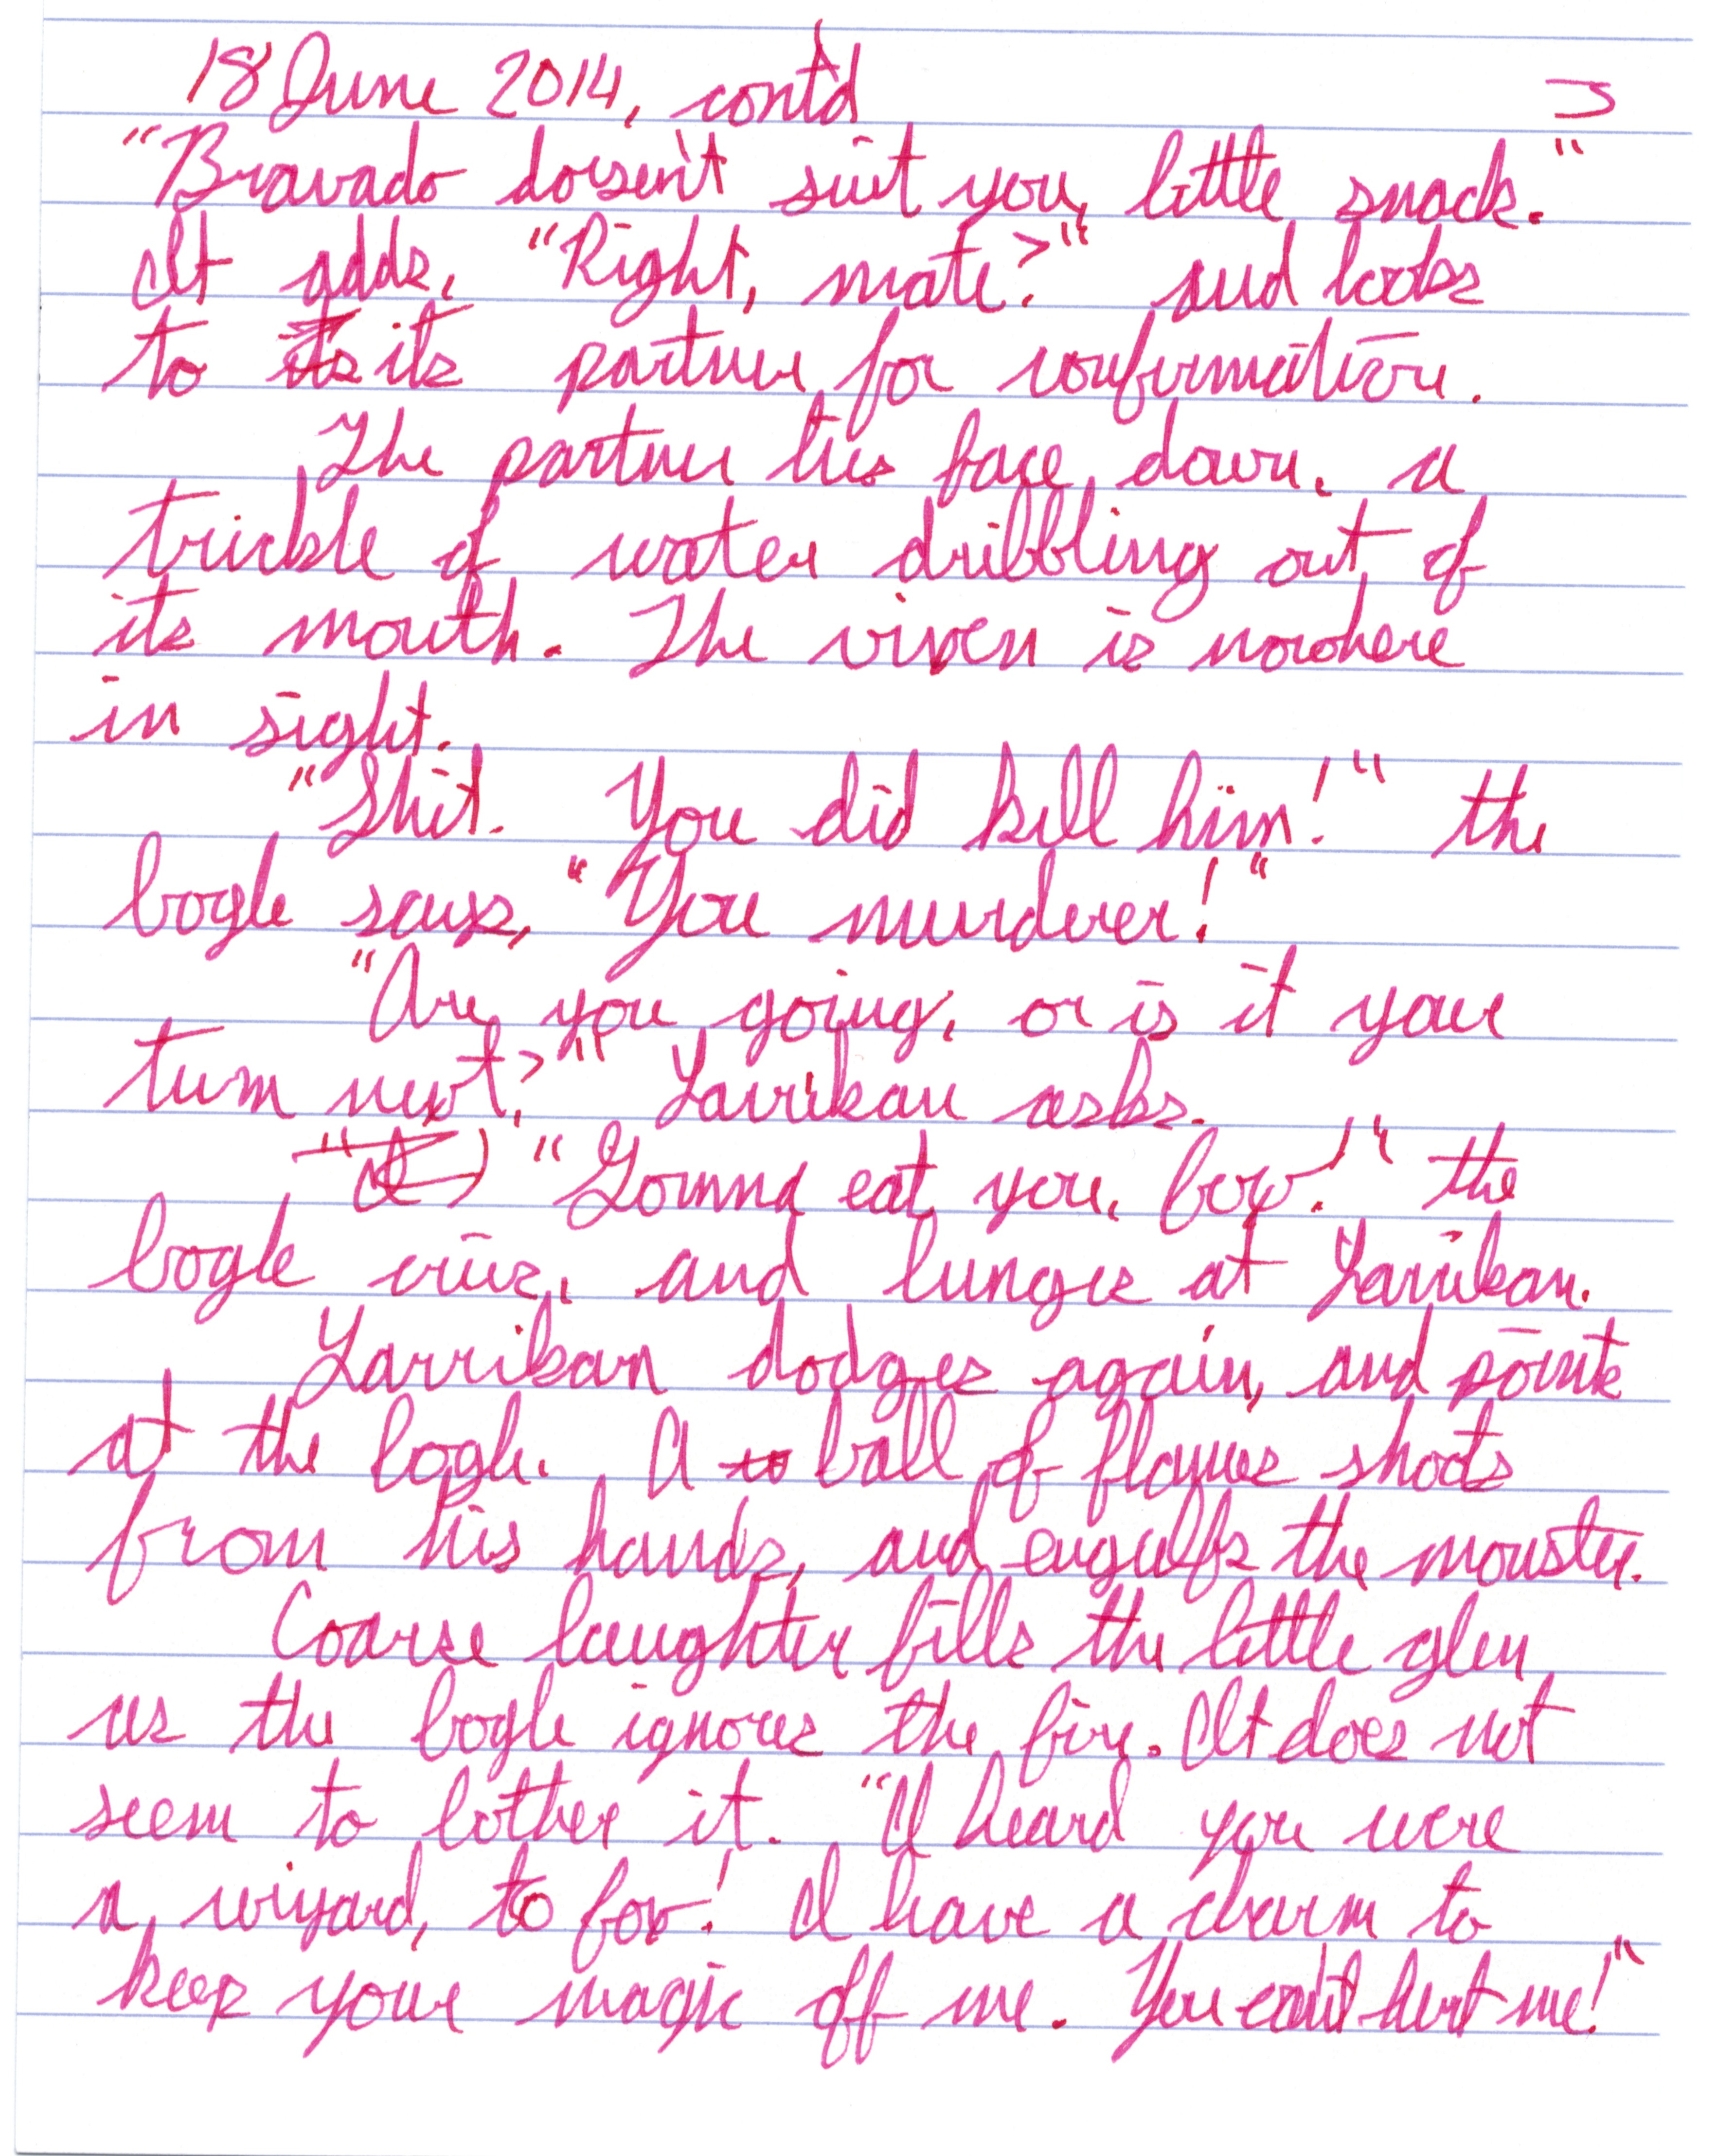 18 June 2014, cont'd
"Bravado doesn't suit you, little snack."
It adds, "Right, mate?" and looks
to its its partner for confirmation.
The partner lies face down, a
trickle of water dribbling out of
its mouth. The vixen is nowhere
in sight.
"Shit. You did kill him!" the
bogle says, "You murderer!"
"Are you going, or is it your
turn next?" Larrikan asks.
"Gonna eat you, boy!" the
bogle cries, and lunges at Larrikan.
Larrikan dodges again, and points
at the bogle. A to ball of flames shoots
from his hands, and engulfs the monster.
Coarse laughter fills the little glen
as the bogle ignores the fire. It does not
seem to bother it. "I heard you were
a wizard, to fox! I have a charm to
keep your magic off me. You can't hurt me!"